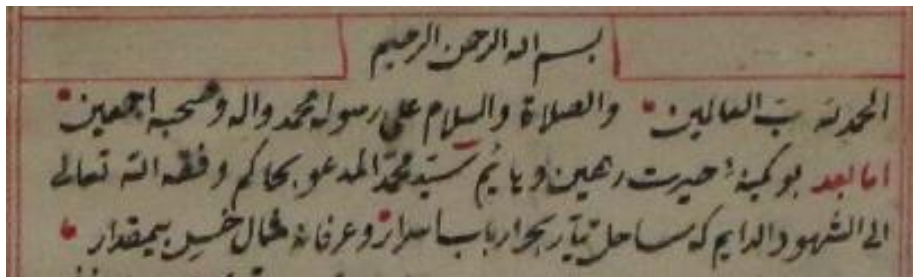 بسم الله الرحمن الرحيم
الحمد لله رب العالمين والصلاة والسلام على رسوله محمد واله وصحبه اجمعين
اما بعد بو كمينهٔ حيرت رهين وپايم سيد محمد المدعو بحاكم وفقه الله تعالى
الى الشهود الدايم كه ساحل بحار ارباب اسرار وعرفانه مثال خس بيمقدار